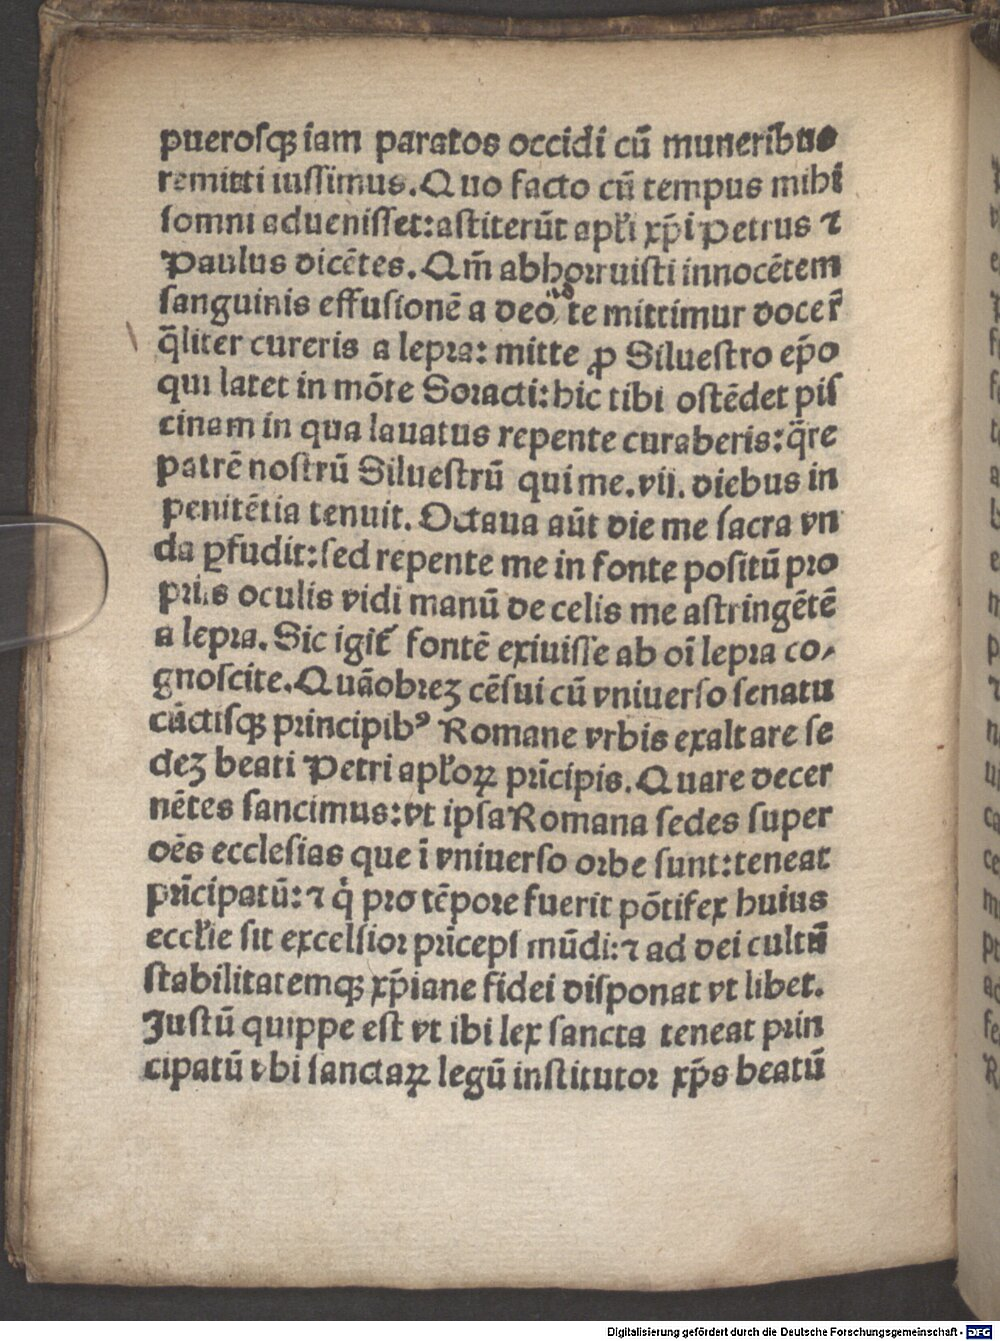 pueroſqꝫ iam paratos occidi cū muneribus
remitti iuſſimus. Quo facto cū tempus mihi
ſomni adueniſſet: aſtiterūt apłi xp̄i Petrus ⁊
Paulus dicētes. Qm̄ abhorruiſti innocētem
ſanguinis effuſionē a deo te mittimur docer̄
q̄liter cureris a lepra: mitte ꝓ Silueſtro ep̄o
qui latet in mōte Soracti: hic tibi oſtēdet piſ
cinam in qua lauatus repente curaberis: q̄re
patrē noſtrū Silueſtrū qui me .vij. diebus in
penitētia tenuit. Octaua aūt die me ſacra vn
da ꝑfudit: ſed repente me in fonte poſitū pro
prijs oculis vidi manū de celis me aſtringētē
a lepra. Sic igit̄ fontē exiuiſſe ab oī lepra co-
gnoſcite. Quāobreꝫ cēſui cū vniuerſo ſenatu
cūctiſqꝫ principibꝰ Romane vrbis exaltare ſe
deꝫ beati Petri apłoꝝ prīcipis. Quare decer
nētes ſancimus: vt ipſa Romana ſedes ſuper
oēs eccleſias que ī vniuerſo orbe ſunt: teneat
prīcipatū: ⁊ qͥ pro tēpore fuerit pōtifex huius
eccłie ſit excelſior prīcepſ mūdi: ⁊ ad dei cultū
ſtabilitatemqꝫ xp̄iane fidei diſponat vt libet.
Juſtū quippe eſt vt ibi lex ſancta teneat prin
cipatū vbi ſanctaꝝ legū inſtitutor xp̄s beatū
Digitalisierung gefördert durch die Deutsche Forschungsgemeinschaft - DFG